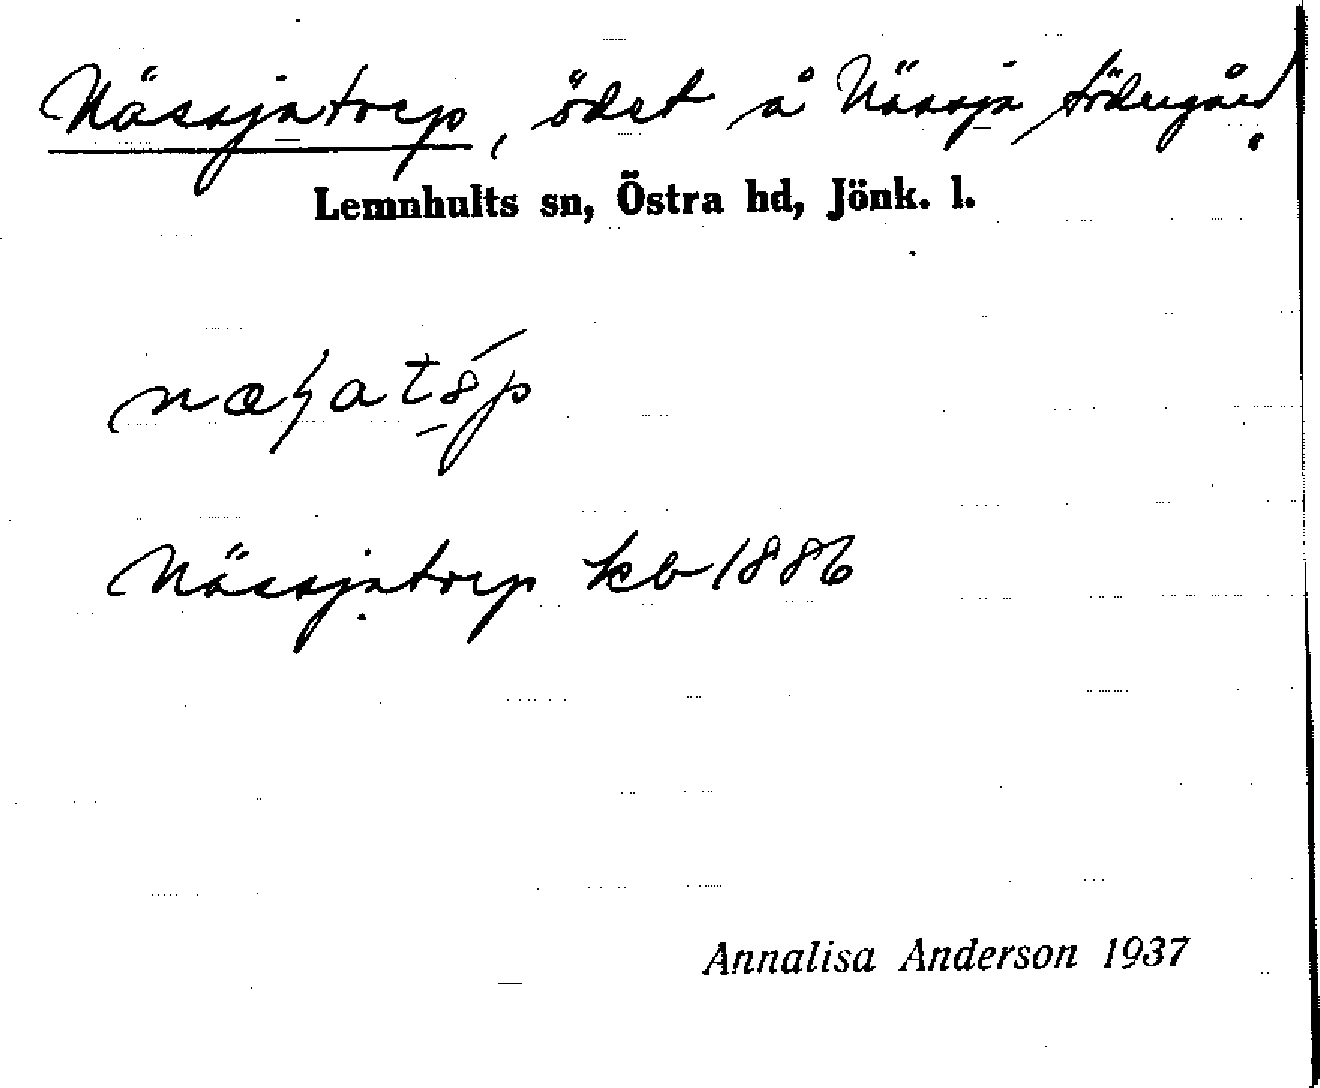 Nässjatorp, ödet å Nässja Södergård.
Lemnhults sn, Östra hd, Jönk. l.
Nässjatorp kb 1886
Annalisa Anderson 1937